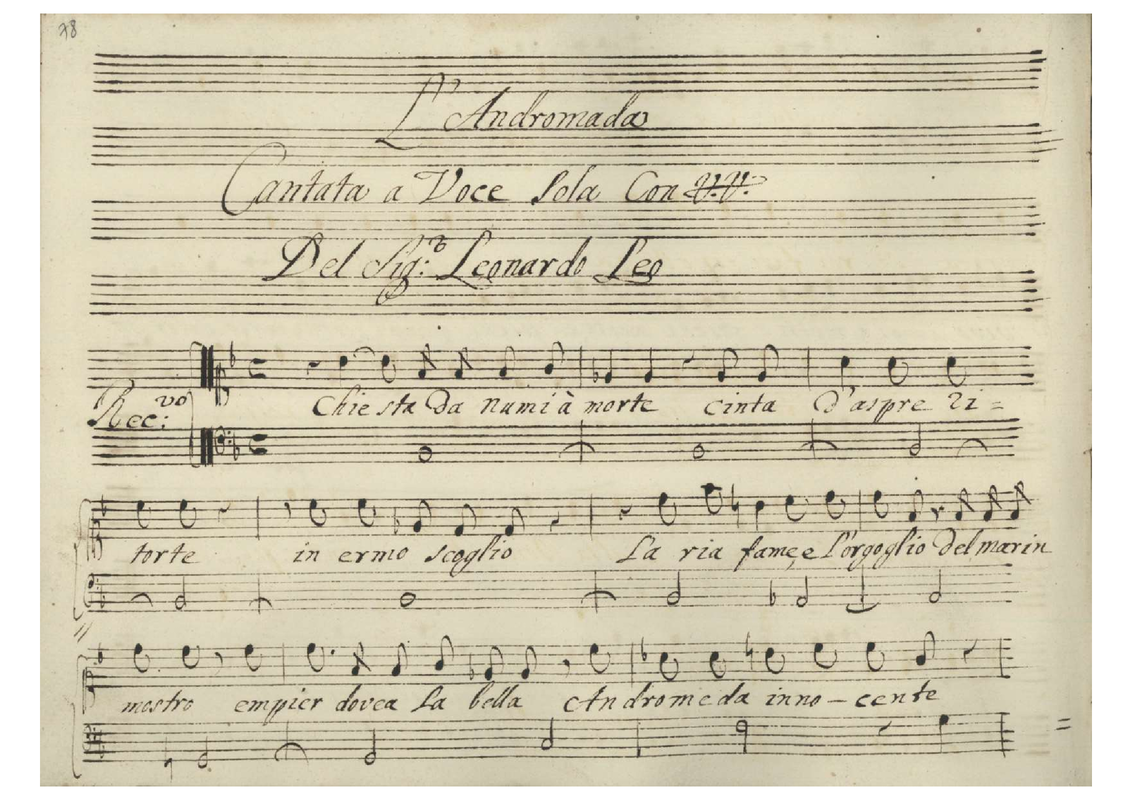 78
L'Andromada
Cantata a Voce Sola Con V.V.
Del Sig:r Leonardo Leo
Rec:vo
Chiesta da numi à morte cinta d'aspre ri=
torte in ermo scoglio La ria fame, e l'orgoglio del marin
mostro empier dovea La bella Andromeda inno-cente